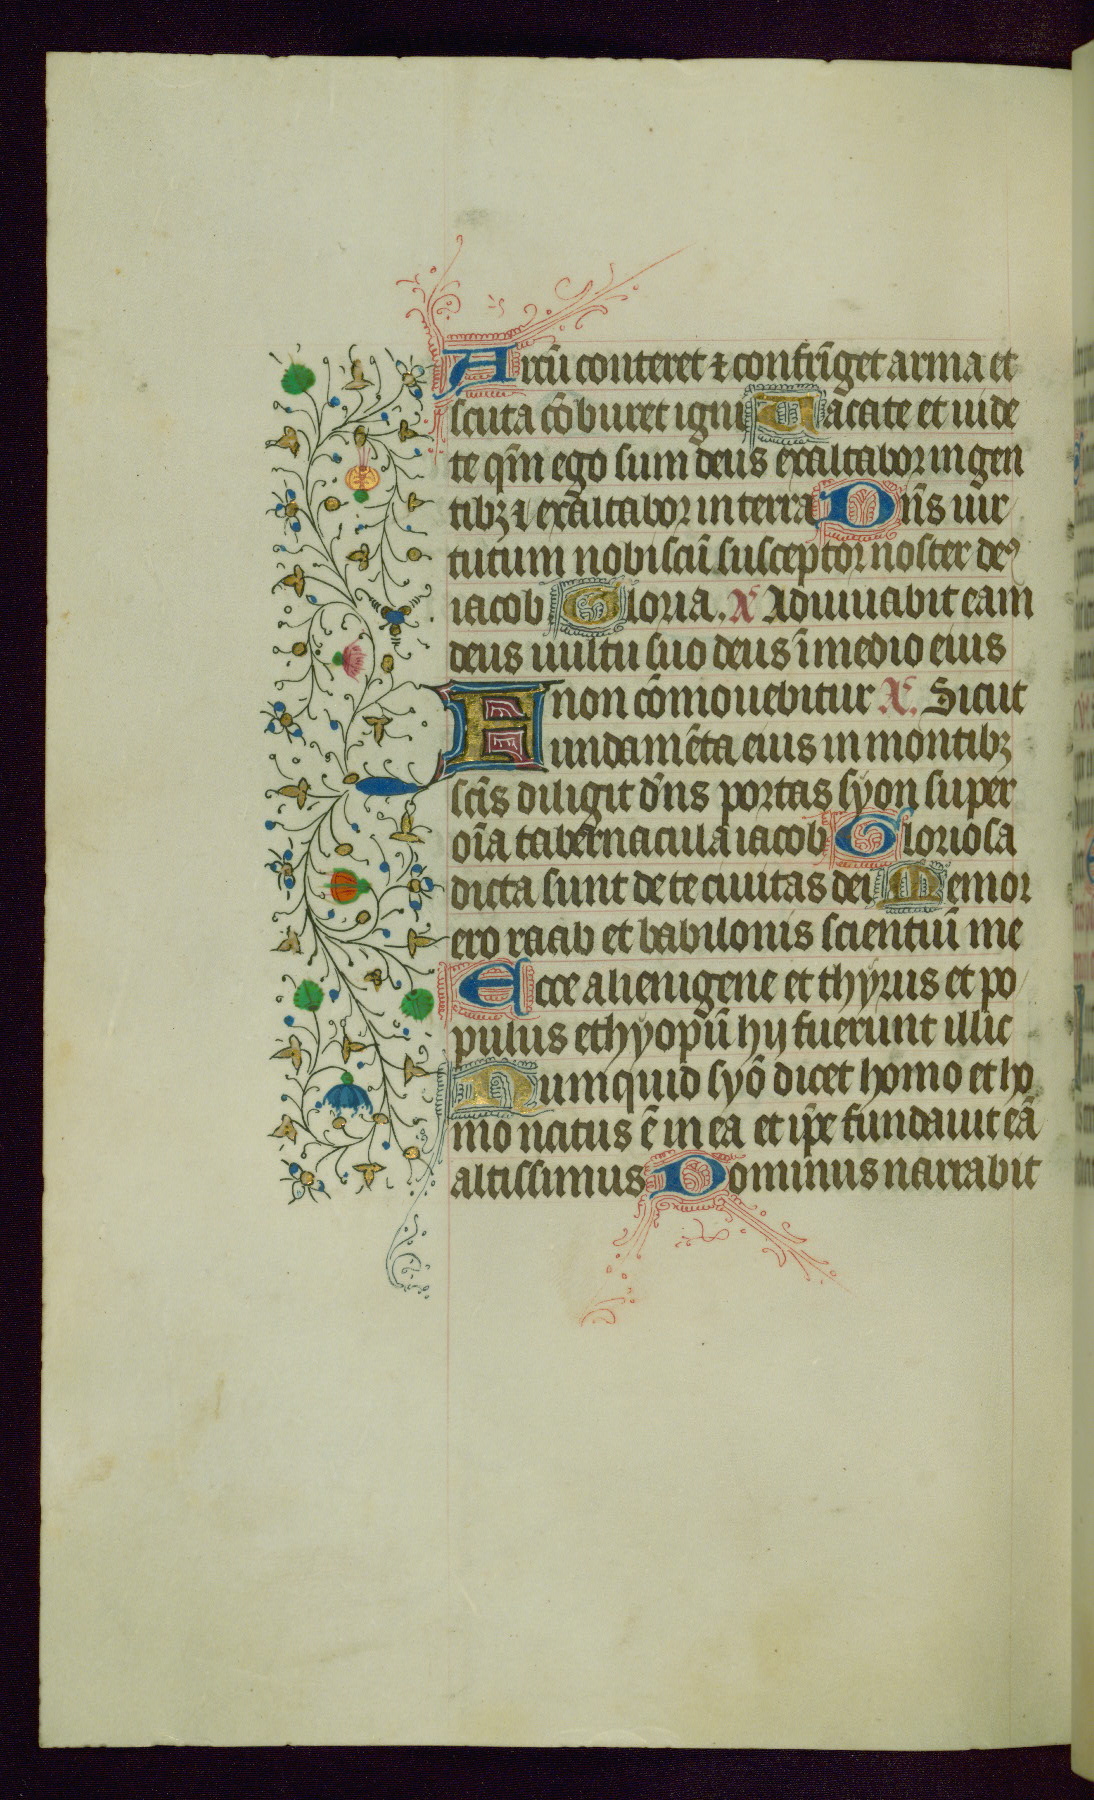 Arcū conteret ⁊ confrīget arma et
scuta cōburet igni Uacate et uide
te qm̄ ego sum deus exaltabor in gen
tibꝫ ⁊ exaltabor in terra Dn̄s uir
tutum nobiscū susceptor noster deꝰ
iacob Gloria. A᷒ Adiuuabit eam
deus uultu suo deus ī medio eius
non cōmouebitur A᷒. Sicut
Fundamēta eius in montibꝫ
sc̄is diligit dn̄s portas syon super
oīa tabernacula iacob Gloriosa
dicta sunt de te ciuitas dei Memor
ero raab et babilonis scientiū me
Ecce alienigene et thyrus et po
pulus ethyopū hij fuerunt illic
Numquid syō dicet homo et ho
mo natus ē in ea et ip̄e fundauit eā
altissimus Dominus narrabit